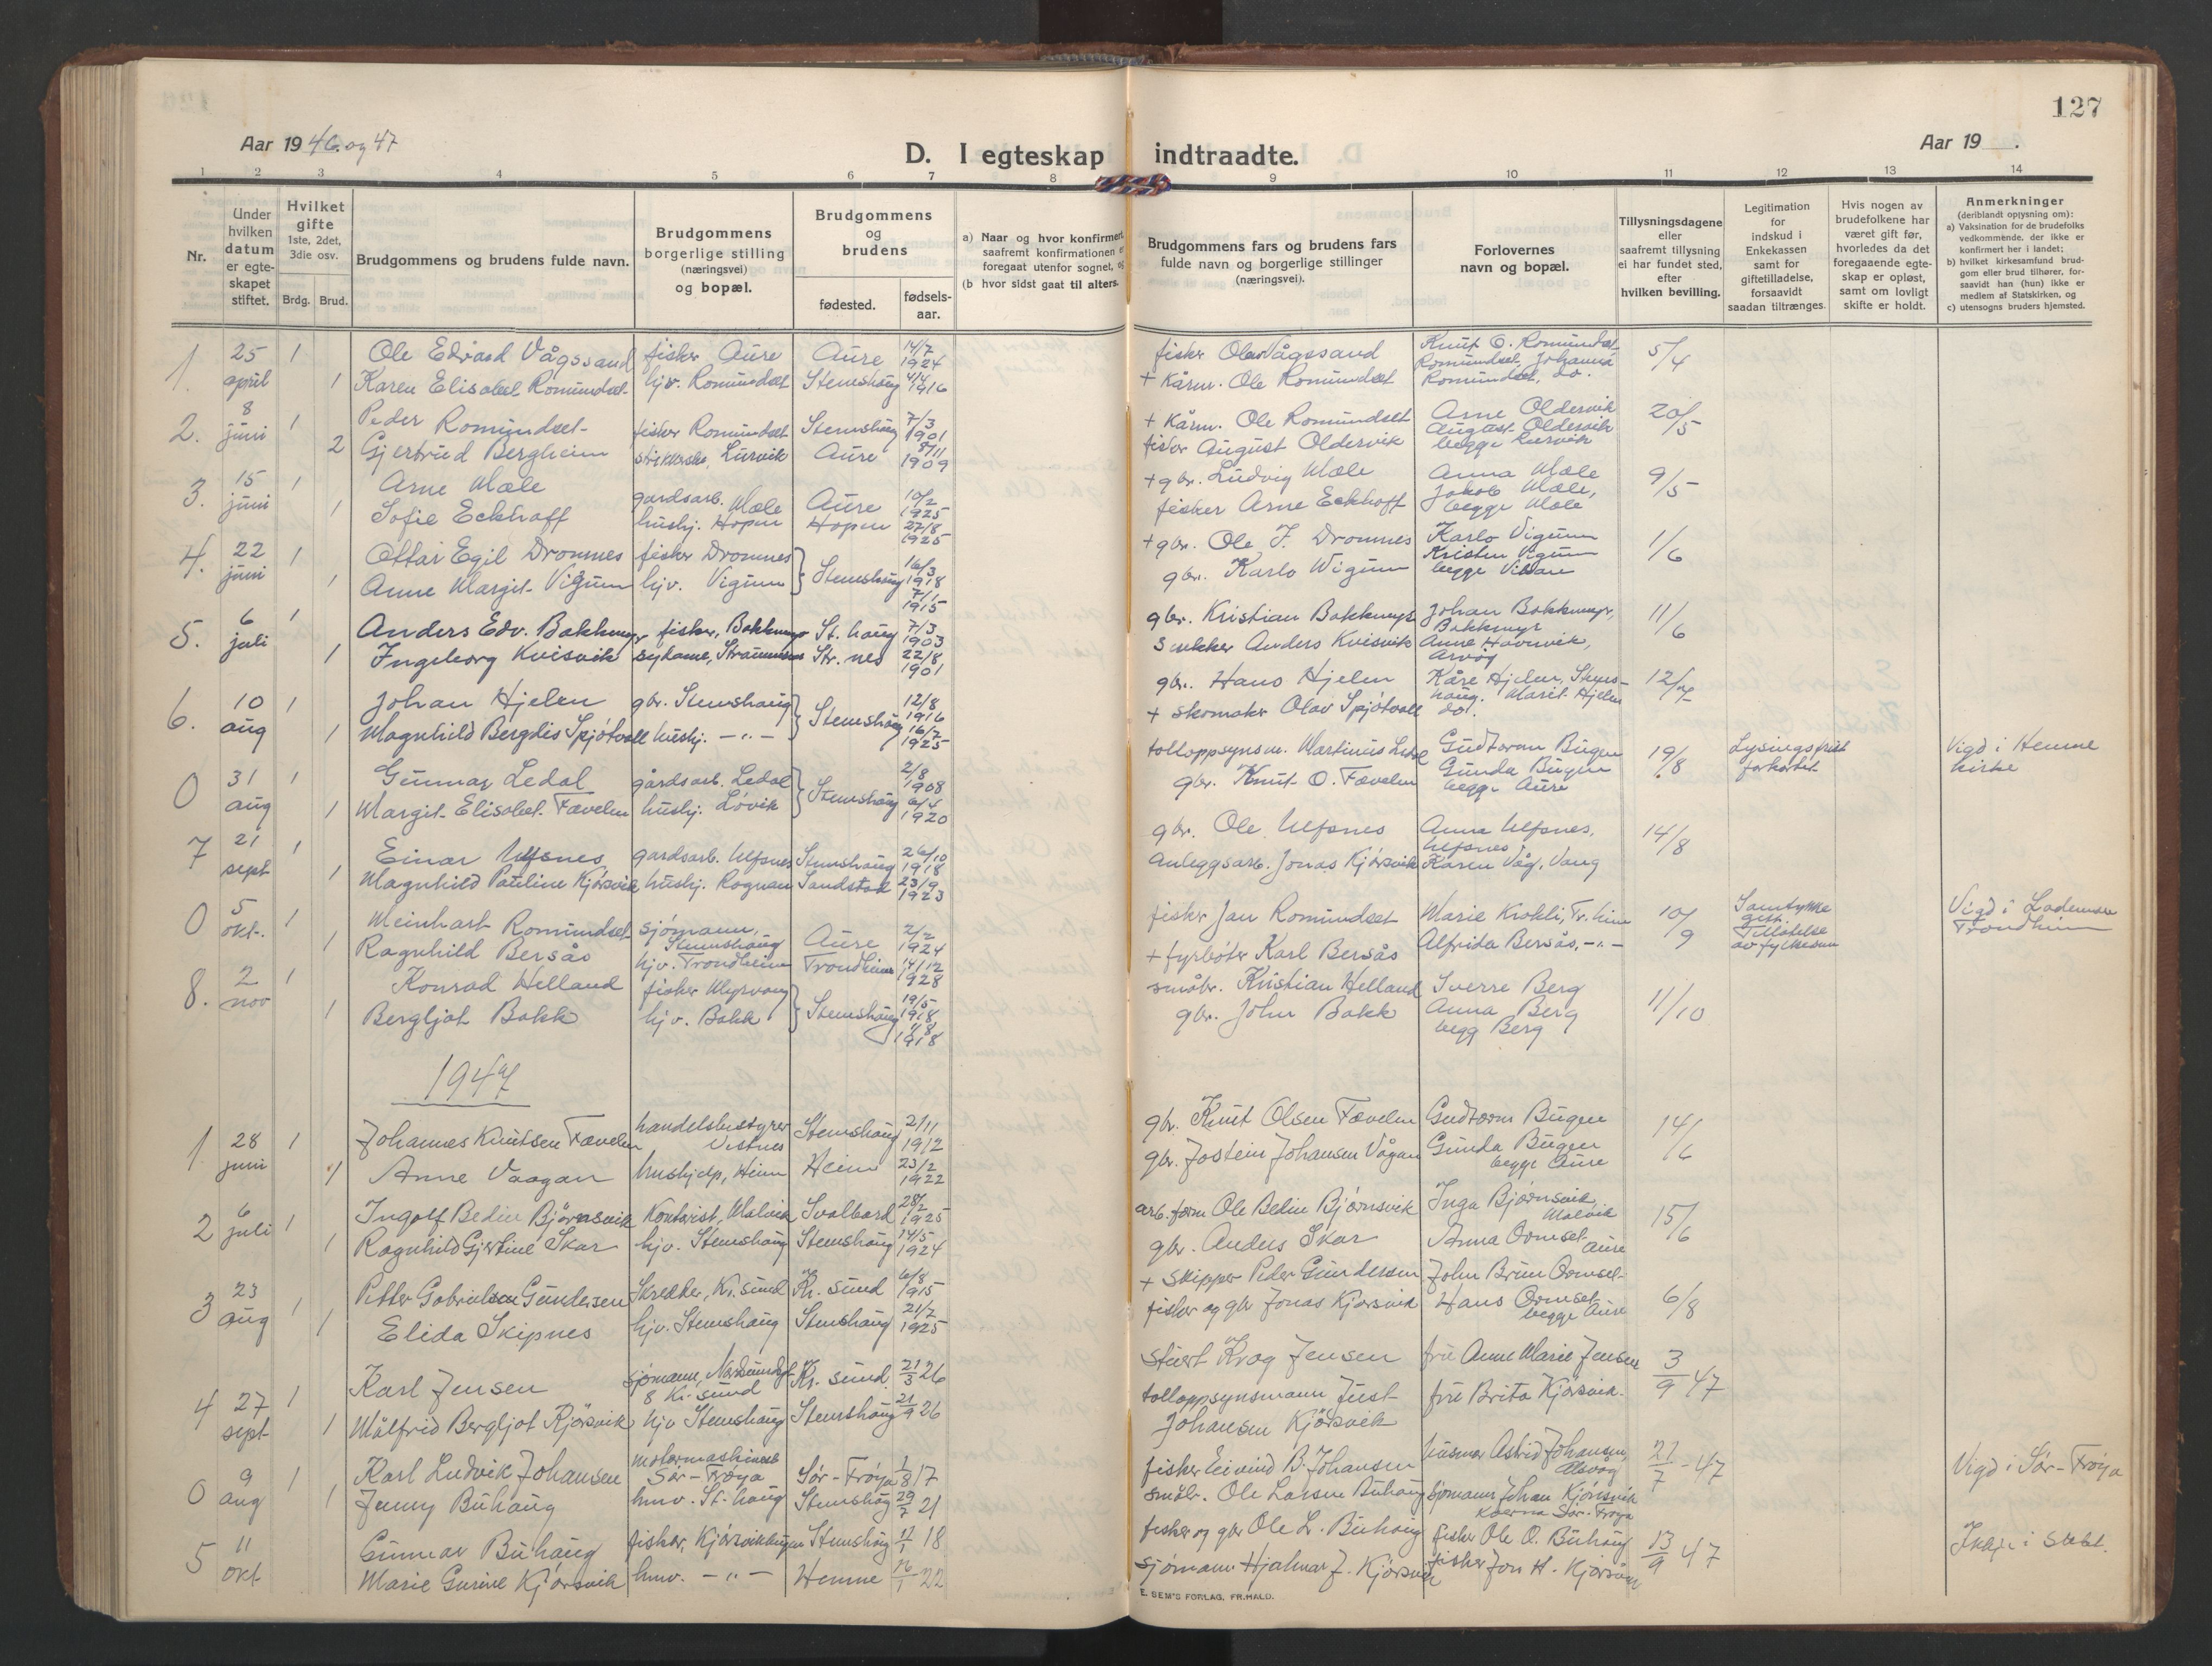 127
Aar 1946. og 47
D. I egteskap indtraadte.
Aar 19 .
1 2 3 4 5 6 7 8 9 10 11 12 13 14
Nr.
Under hvilken datum er egteskapet stiftet.
Hvilket gifte 1ste, 2det, 3die osv.
Brdg. Brud.
Brudgommens og brudens fulde navn.
Brudgommens borgerlige stilling (næringsvei) og bopæl.
Brudgommens og brudens
fødested. fødselsaar.
a) Naar og hvor konfirmert, saafremt konfirmationen er foregaat utenfor sognet, og
(b hvor sidst gaat til alters.
Brudgommens fars og brudens fars fulde navn og borgerlige stillinger (næringsvei).
Forlovernes navn og bopæl.
Tillysningsdagene eller saafremt tillysning ei har fundet sted, efter hvilken bevilling.
Legitimation for indskud i Enkekassen samt for giftetilladelse, forsaavidt saadan tiltrænges.
Hvis nogen av brudefolkene har været gift før, hvorledes da det foregaaende egteskap er opløst, samt om lovligt skifte er holdt.
Anmerkninger (deriblandt oplysning om):
a) Vaksination for de brudefolks vedkommende, der ikke er konfirmert her i landet;
b) hvilket kirkesamfund brudgom eller brud tilhører, forsaavidt han (hun) ikke er medlem af Statskirken, og
c) utensogns bruders hjemsted.
1. 25 april 1 Ole Edvard Vågssand fisker Aure Aure 14/7 1924 fisker Olav Vågssand Knut O. Romundset 5/4
1 Karen Elisabet Romundset hjv. Romundset Stemshaug 4/4 1916 + kårm. Ole Romundset Romundset, Johanna Romundset, do.
2. 8 juni 1 Peder Romundset fisker Romundset Stemshaug 7/3 1901 + kårm. Ole Romundset Arne Oldervik 20/5
2 Gjertrud Bergheim Lurvik Aure 8/11 1909 fisker August Oldervik August Oldervik begge Lurvik
3. 15 juni 1 Arne Mæle gardsarb. Mæle Aure 10/2 1925 + gbr. Ludvig Mæle Anna Mæle 9/5
1 Sofie Eckhoff hushj. Hopen Hopen 27/8 1925 fisker Arne Eckhoff Jakob Mæle, begge Mæle
4. 22 juni 1 Ottar Egil Dromnes fisker Dromnes Stemshaug 16/3 1918 + gbr. Ole J. Dromnes Karlo Vigum 1/6
1 Anne Margit Vigum hjv. Vigum 7/1 1915 gbr. Karlo Wigum Kristen Vigum begge
5. 6 juli 1 Anders Edv. Bakkmyr fisker, Bakkmyr St. haug 7/3 1903 gbr. Kristian Bakkmyr Johan Bakkmyr, Bakkmyr 11/6
1 Ingeborg Kvisvik sydame, Straumsnes Str. nes 22/8 1901 snekker Anders Kvisvik Anne Havnvik, Arvåg
6. 10 aug 1 Johan Hjelen gbr. Stemshaug Stemshaug 12/8 1916 gbr. Hans Hjelen Kåre Hjelen, Stemshaug. 12/7
1 Magnhild Bergdis Spjøtvoll hushj. -"- 16/7 1925 + skomaker Olav Spjøtvoll Marit Hjelen do.
0 31 aug 1 Gunnar Ledal gårdsarb. Ledal Stemshaug 2/8 1908 tolloppsynsm. Martinus Ledal Gudtorm Bugen 19/8 Lysingsfrist forkortet Vigd i Hemne kirke
1 Margit Elisabet Fævelen hushj. Løvik 6/4 1920 gbr. Knut O. Fævelen Gunda Bugen begge Aure
7 21 sept 1 Einar Ulfsnes gardsarb. Ulfsnes Stemshaug 26/10 1918 gbr. Ole Ulfsnes Anna Ulfsnes, Ulfsnes 14/8
1 Magnhild Pauline Kjørsvik hushj. Rognan Sandstad 23/9 1923 Anleggsarb. Jonas Kjørsvik Karen Våg, Vaag
0 5 okt. 1 Meinhart Romundset sjømann, Stemshaug Aure 2/2 1924 fisker Jan Romundset Marie Krokli, Tr.heim 10/9 Samtykke gitt. Tillatelse av fylkesm Vigd i Lademoen Trondheim
1 Ragnhild Bersås hjv. Trondheim Trondheim 14/12 1928 + fyrbøter Karl Bersås Alfrida Bersås, -"-
8. 2 nov 1 Konrad Helland fisker Myrvang Stemshaug 19/5 1918 småbr. Kristian Helland Sverre Berg 11/10
1 Bergljot Bakk hjv. Bakk 1918 gbr. John Bakk Anna Berg begg Berg
1947
1 28 juni 1 Johannes Knutsen Fævelen handelsbestyrer Vestnes Stemshaug 2/11 1912 gbr. Knut Olsen Fævelen Gudtorm Bugen 14/6
1 Anne Vaagan hushjelp, Heim Heim 23/2 1922 gbr. Jostein Johansen Vågan Gunda Bugen begge Aure
2 6 juli 1 Ingolf Bedin Bjørnsvik Kontorist, Malvik Svalbard 28/2 1925 arb. form Ole Bedin Bjørnsvik Inga Bjørnsvik Malvik 15/6
1 Ragnhild Gjertine Skar hjv. Stemshaug Stemshaug 14/5 1924 gbr. Anders Skar Anna Ormset Aure
3 23 aug 1 Petter Gabrielsen Gundersen Skredder, Kr.sund Kr. sund 6/8 1915 + Skipper Peder Gundersen John Brun Ormset 6/8
1 Elida Skipnes hjv. Stemshaug Stemshaug 21/7 1925 fisker og gbr Jonas Kjørsvik Hans Ormset begge Aure
4 27 sept 1 Karl Jensen sjømann, 8 Kr. sund Kr. sund 21/3 26 stuert Krag Jensen fru Anne Marie Jensen 3/9 47
1 Målfrid Bergljot Kjørsvik hjv Stemshaug Stemshaug 21/9 26 tolloppsynsmann Just Johansen Kjørsvik fru Brita Kjørsvik.
0 9 aug 1 Karl Ludvik Johansen motormaskinist Sør-Frøya Sør-Frøya 1/8 17 fisker Eivind B. Johansen husmor Astrid Johansen, 21/7 - 47 Vigd i Sør-Frøya
1 Jenny Buhaug hmv. St.haug Stemshaug 29/7 21 småbr. Ole Larsen Buhaug sjømann Johan Kjørsvik Sør-Frøya
5 11 okt Gunnar Buhaug fisker, Kjørsvikbugen Stemshaug 18 fisker og gbr Ole L. Buhaug fisker Ole O. Buhaug 13/9 47
Marie Gurine Kjørsvik hmv. -"- Hemne 22 sjømann Hjalmar J. Kjørsvik fisker Jon H. Kjørsvik
E. SEM'S FORLAG, FR.HALD.